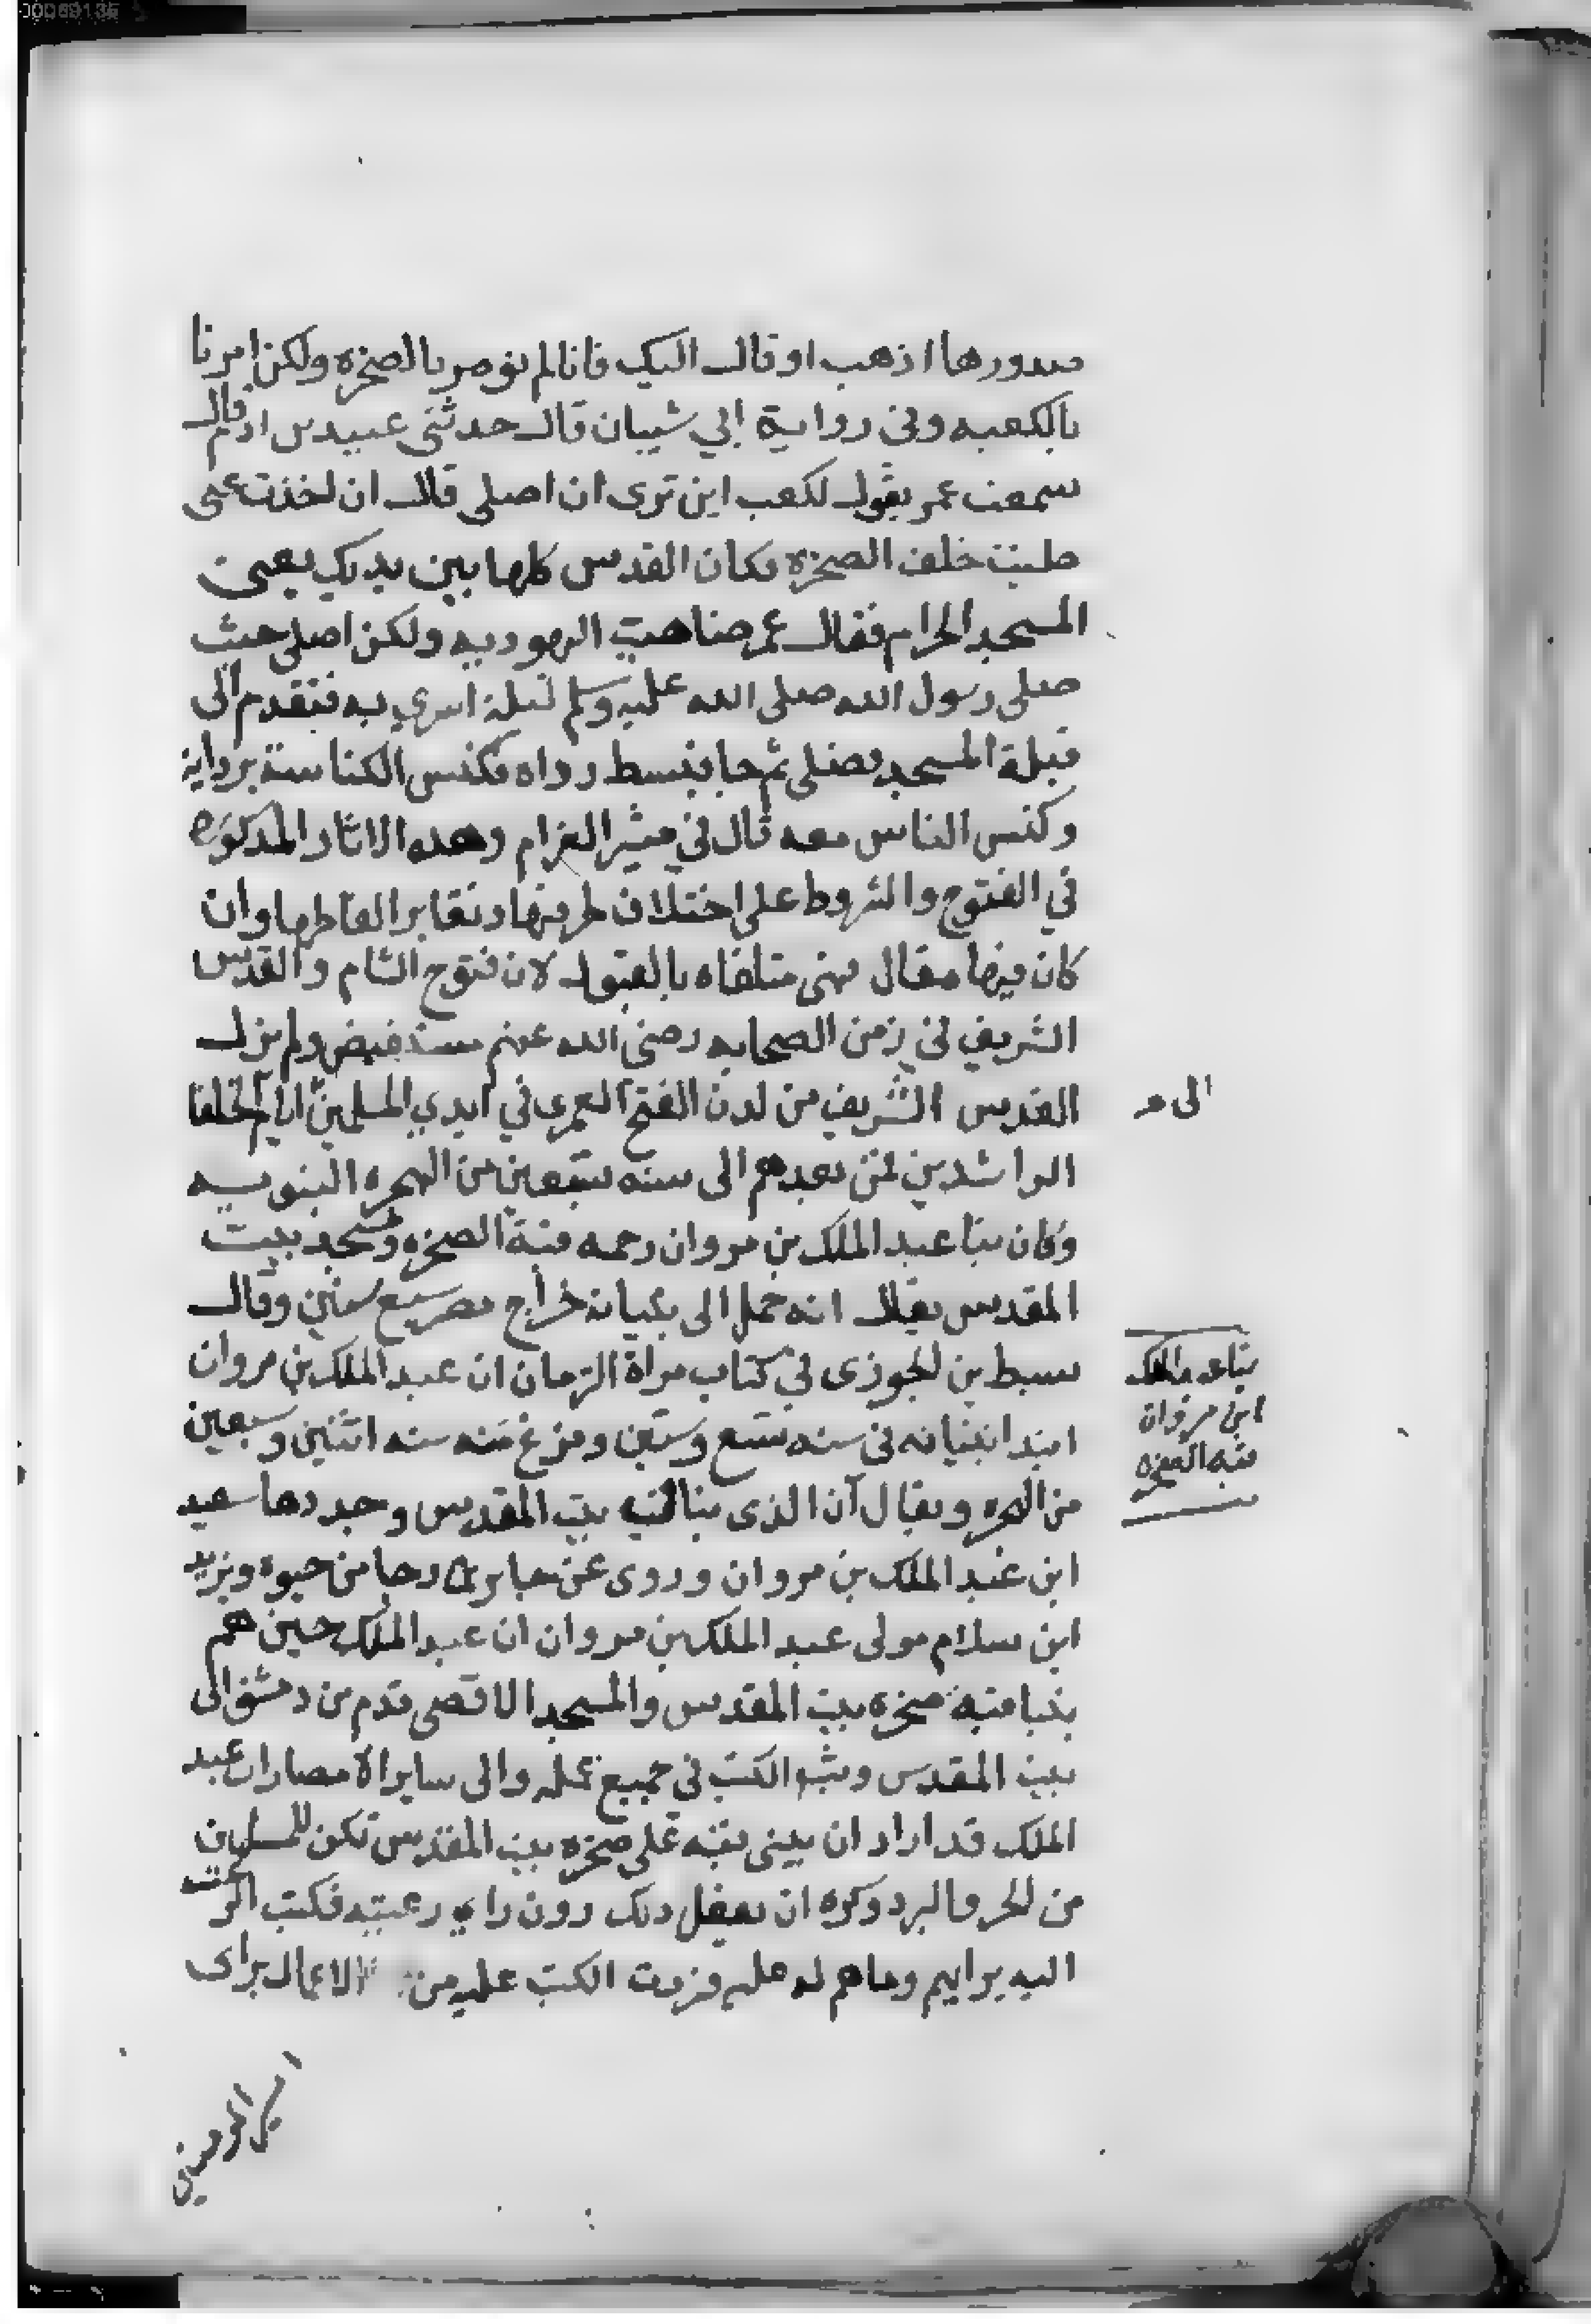 صدورها اذهب او قال اليك فانا لم نومر بالصخره ولكن امرنا
بالكعبه وفي رواية ابي شيبان قال حدثني عبيد بن ادم قال
سمعت عمر يقول لكعب اين ترى ان اصلي قال ان اخذت عني
صليت خلف الصخره فكان القدس كلها بين يديك يعني
المسجد الحرام فقال عمر ضاهيت اليهوديه ولكن اصلي حيث
صلى رسول الله صلى الله عليه وسلم ليلة اسري به فتقدم الى
قبلة المسجد فصلى ثم جا فبسط رداه فكنس الكناسة بردايه
وكنس الناس معه قال في مثير الغرام وهده الاثار المدكوره
في الفتوح والشروط على اختلاف طرقها وتغاير الفاظها وان
كان فيها مقال فهي متلقاه بالقبول لان فتوح الشام والقدس
الشريف في زمن الصحابه رضي الله عنهم مستفيض ولم يزل
القدس الشريف من لدن الفتح العمري في ايدي المسلمين ايام الخلفا
الى مر
الراشدين فمن بعدهم الى سنه سبعين من الهجره النبويه
وكان بنا عبد الملك بن مروان رحمه قبة الصخره ومسجد بيت
المقدس يقال انه حمل الى بنيانه خراج مصر سبع سنين وقال
سبط بن الجوزى في كتاب مراة الزمان ان عبد الملك بن مروان
ابتدا بنيانه في سنه تسع وستين وفرغ منه سنه اثنين وسبعين
بنا عبد الملك
ابن مروان
قبه الصخره
من الهجره ويقال ان الذى بنا قبه بيت المقدس وجددها سعيد
ابن عبد الملك بن مروان وروى عن جابر رجا من حيوه ويزيد
ابن سلام مولى عبد الملك بن مروان ان عبد الملك حين هم
ببنا قبه صخره بيت المقدس والمسجد الاقصى قدم من دمشق الى
بيت المقدس وبث الكتب في جميع عمله والى ساير الامصار ان عبد
الملك قد اراد ان يبني قبه على صخره بيت المقدس تكن المسلمين
من الحر والبرد وكره ان يفعل دلك دون راي رعيته فكتب الرعيه
اليه برايهم وما هم عليه فردت الكتب عليه من الاعمال براى
امير المومنين